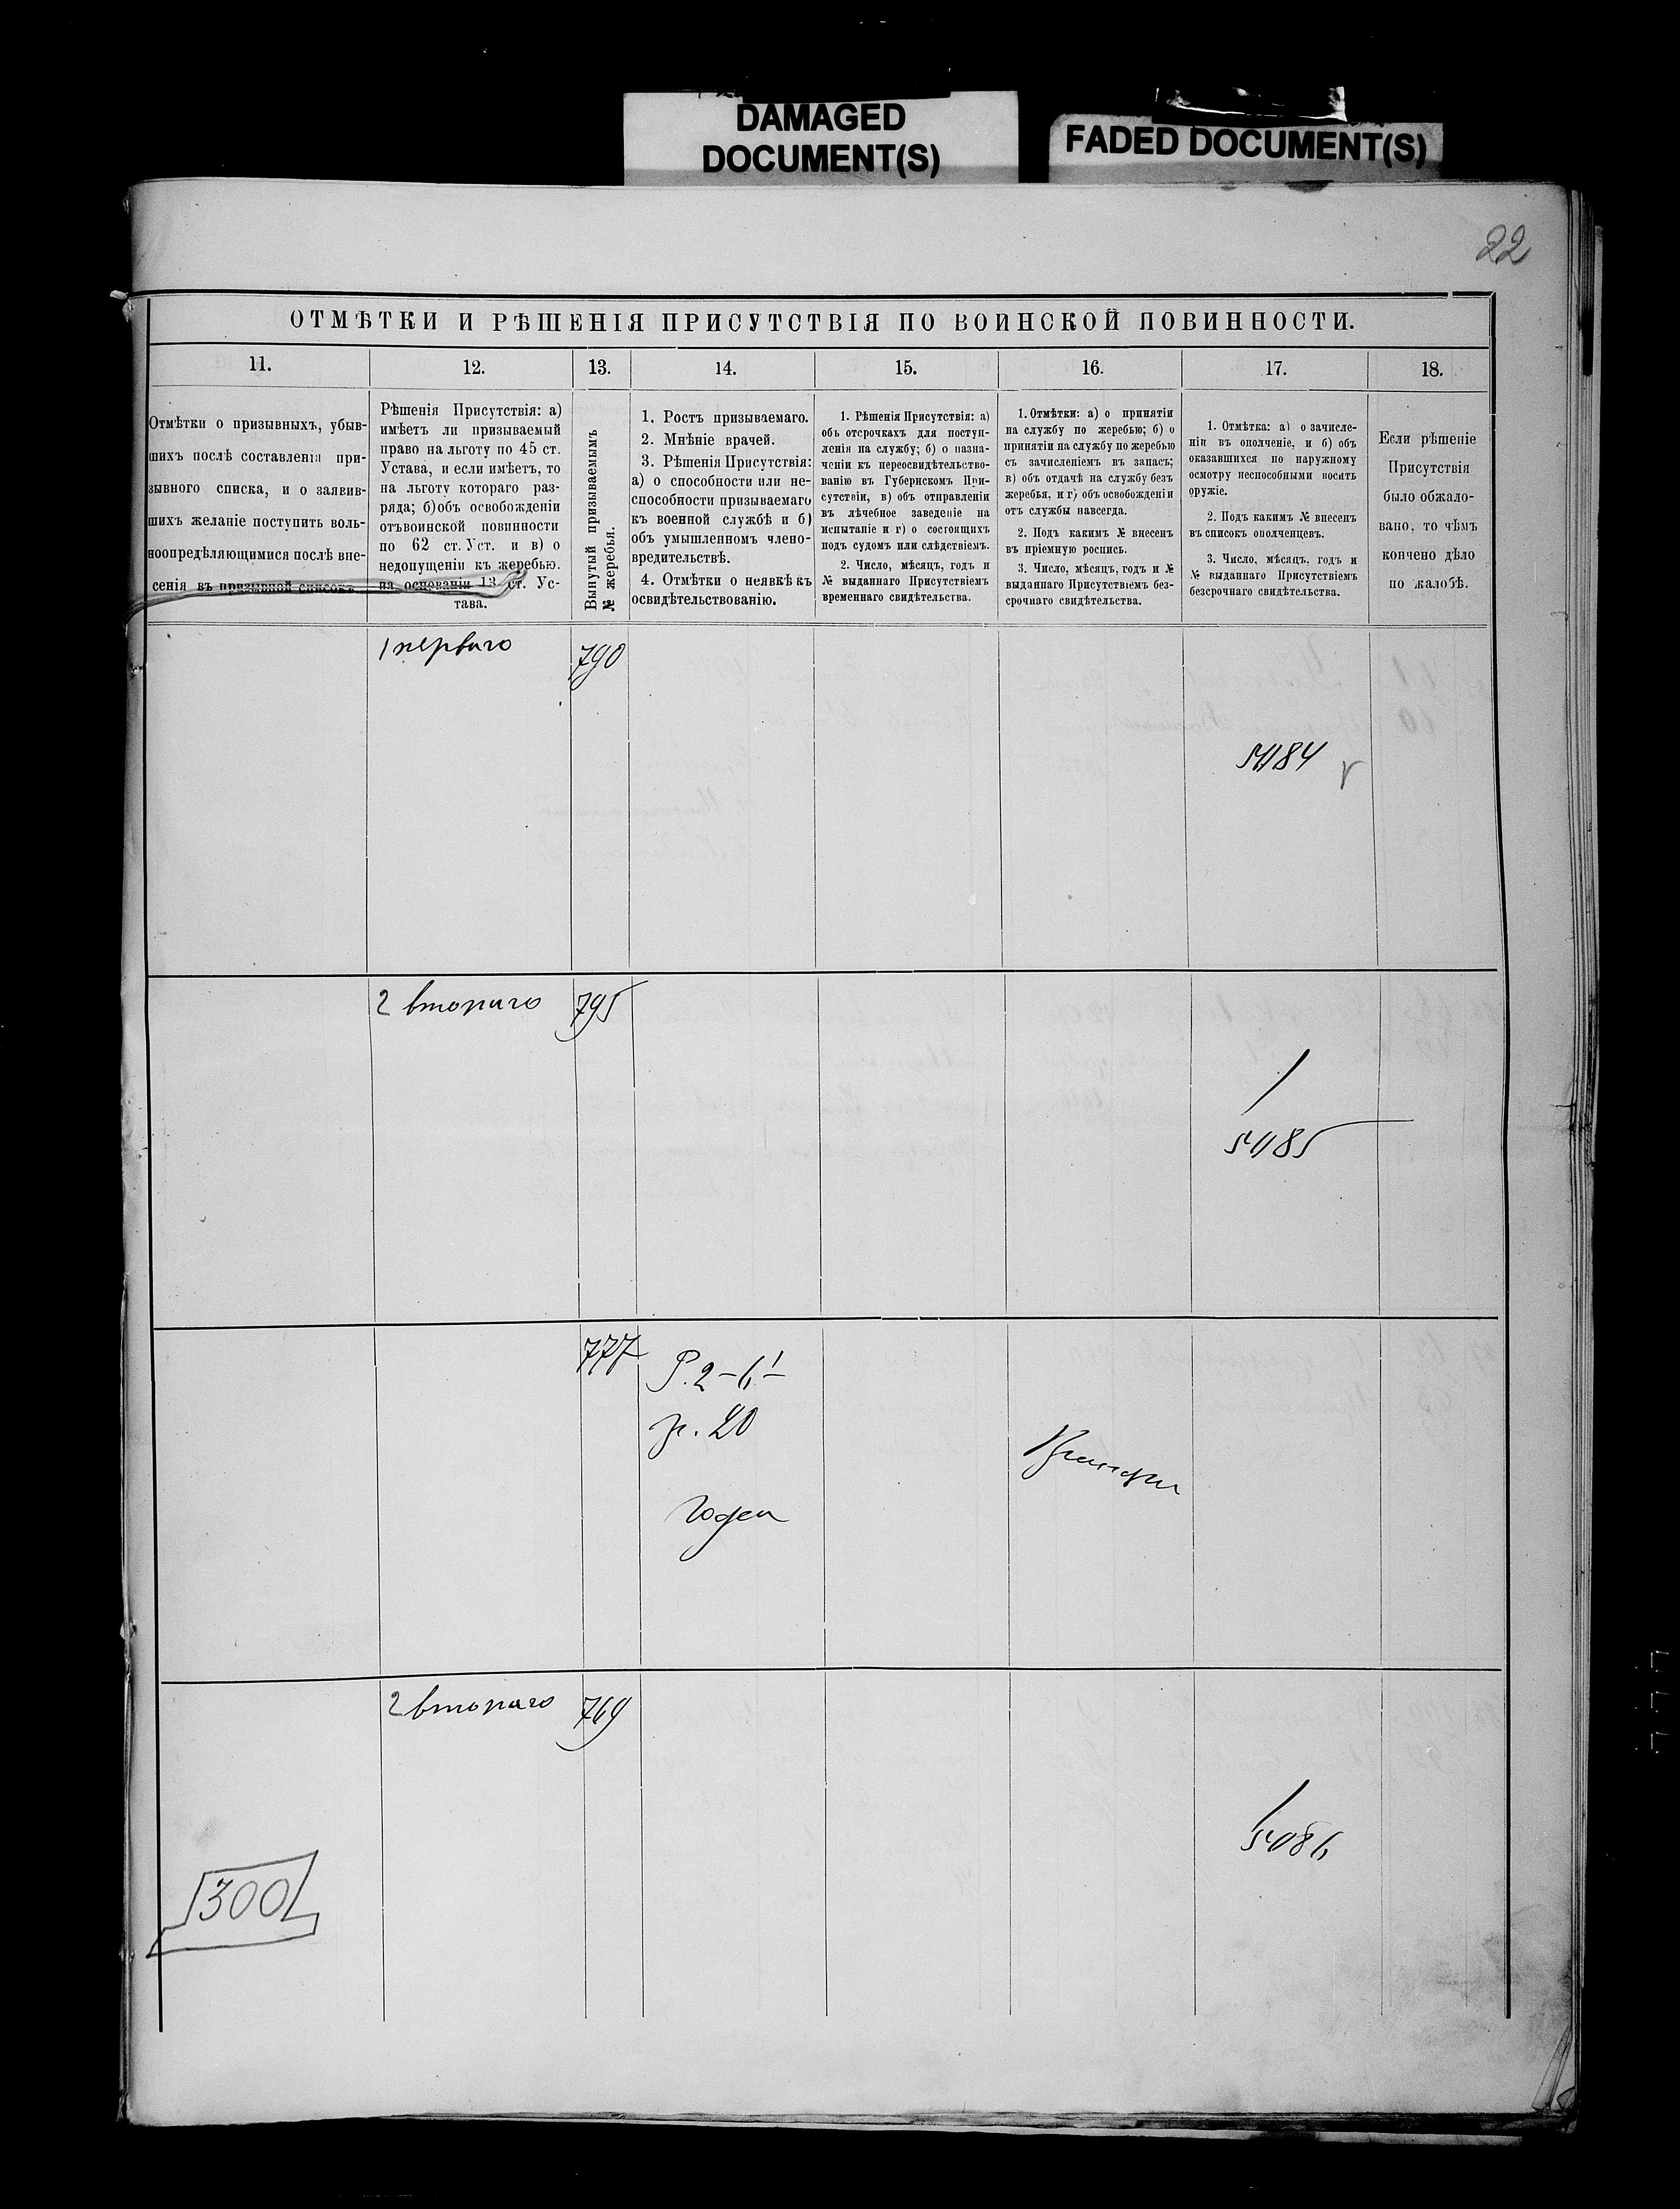 DAMAGED
DOCUMENT(S)
FADED DOCUMENT(S)
22
ОТМѢТКИ И РѢШЕНІЯ ПРИСУТСТВІЯ ПО ВОИНСКОЙ ПОВИННОСТИ.
11.
12.
13.
14.
15.
16.
17.
18.
Отмѣтки о призывныхъ, убыв-
шихъ послѣ составленія при-
зывного списка, и о заявив-
шихъ желаніе поступить воль-
ноопредѣляющимися послѣ вне-
сенія въ призывной списокъ.
Рѣшенія Присутствія: а)
имѣетъ ли призываемый
право на льготу по 45 ст.
Устава, и если имѣетъ, то
на льготу котораго раз-
ряда; б) объ освобожденіи
отъ воинской повинности
по 62 ст. Уст. и в) о
недопущеніи къ жеребью.
на основаніи 13 ст. Ус-
тава.
Вынутый призываемымъ
№ жеребья.
1. Ростъ призываемаго.
2. Мнѣніе врачей.
3. Рѣшенія Присутствія:
а) о способности или не-
способности призываемаго
къ военной службѣ и б)
объ умышленномъ члено-
вредительствѣ.
4. Отмѣтки о неявкѣ къ
освидѣтельствованію.
1. Рѣшенія Присутствія: а)
объ отсрочкахъ для поступ-
ленія на службу; б) о назна-
ченіи къ переосвидѣтельство-
ванію въ Губернскомъ При-
сутствіи, в) объ отправленіи
въ лѣчебное заведеніе на
испытаніе и г) о состоящихъ
подъ судомъ или слѣдствіемъ.
2. Число, мѣсяцъ, годъ и
№ выданнаго Присутствіемъ
временнаго свидѣтельства.
1. Отмѣтки: а) о принятіи
на службу по жеребью; б) о
принятіи на службу по жеребью
съ зачисленіемъ въ запасъ;
в) объ отдачѣ на службу безъ
жеребья, и г) объ освобожденіи
отъ службы навсегда.
2. Подъ какимъ № внесенъ
въ пріемную роспись.
3. Число, мѣсяцъ, годъ и №
выданнаго Присутствіемъ без-
срочнаго свидѣтельства.
1. Отмѣтка: а) о зачисле-
ніи въ ополченіе, и б) объ
оказавшихся по наружному
осмотру неспособными носить
оружіе.
2. Подъ какимъ № внесенъ
въ списокъ ополченцевъ.
3. Число, мѣсяцъ, годъ и
№ выданнаго Присутствіемъ
безсрочнаго свидѣтельства.
Если рѣшеніе
Присутствія
было обжало-
вано, то чѣмъ
кончено дѣло
по жалобѣ.
1 перваго
790
2 втораго
795
777
Р. 2–6
годен
2 втораго
769
300